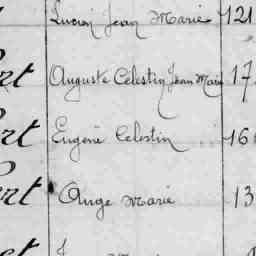 Lucien Jean Marie 121
ert Auguste Celestin Jean Marie 17
ert Eugène Celestin 16
ert Ange Marie 13